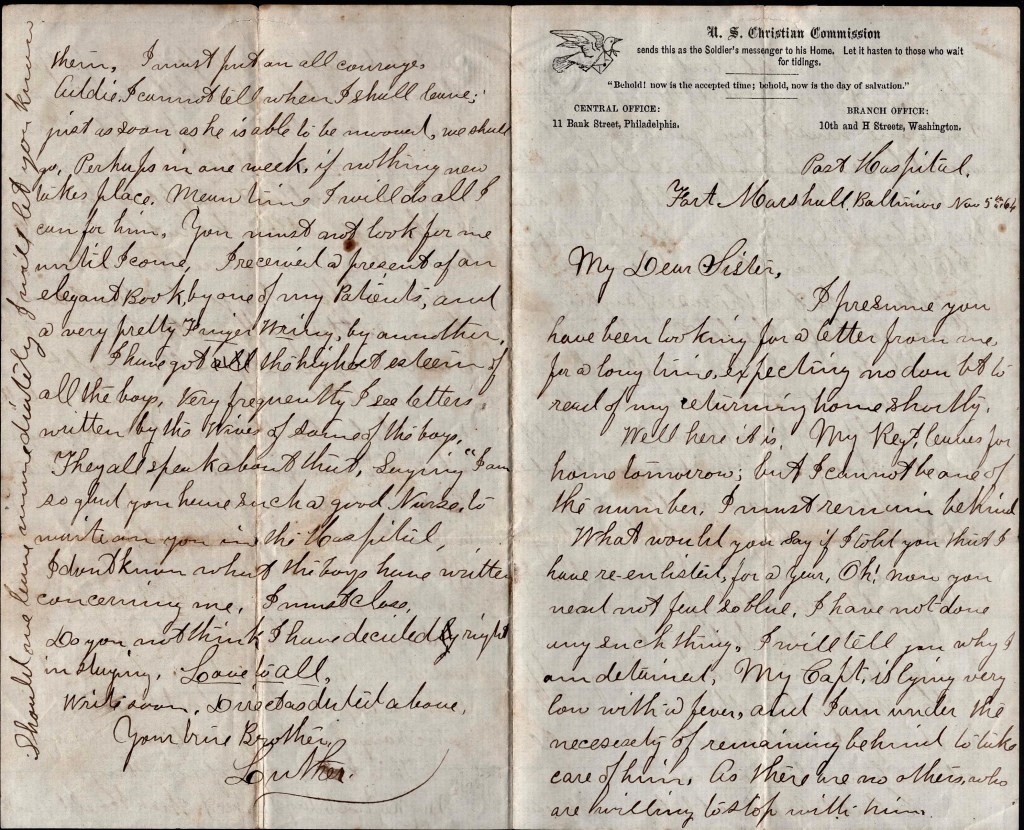 U. S. Christian Commission
sends this as the Soldier's messenger to his Home. Let it hasten to those who wait
for tidings.
"Behold! now is the accepted time; behold, now is the day of salvation."
CENTRAL OFFICE:
11 Bank Street, Philadelphia.
BRANCH OFFICE:
10th and H Streets, Washington.
Post Hospital,
Fort Marshall, Baltimore Nov 5th 64
My Dear Sister,
I presume you
have been looking for a letter from me
for a long time, expecting no doubt to
read of my returning home shortly.
Well here it is. My Regt. leaves for
home tomorrow; but I cannot be one of
the number. I must remain behind
What would you say if I told you that I
have re-enlisted, for a year, Oh! now you
need not feel so blue. I have not done
any such thing. I will tell you why I
am detained. My Capt. is lying very
low with a fever, and I am under the
necessity of remaining behind to take
care of him. As there are no others, who
are willing to stop with him.
them. I must put on all courage
Addie. I cannot tell when I shall leave;
just as soon as he is able to be mooved, we shall
go. Perhaps in one week, if nothing new
takes place. Mean time I will do all I
can for him. You must not look for me
until I come. I received a present of an
elegant Book, by one of my Patients, and
a very pretty Finger Wring, by another.
I have got the highest esteem of
all the boys. Very frequently I see letters
written by the Wives of some of the boys.
They all speak about that, Saying "I am
so glad you have such a good Nurse, to
wait on you in the Hospital,
I dont know what the boys have written
concerning me. I must close,
Do you not think I have decided right
in staying. Love to all,
Write soon. Direct as dated above.
Your true Brother,
Luther.
Should we leave immediately I will let you know